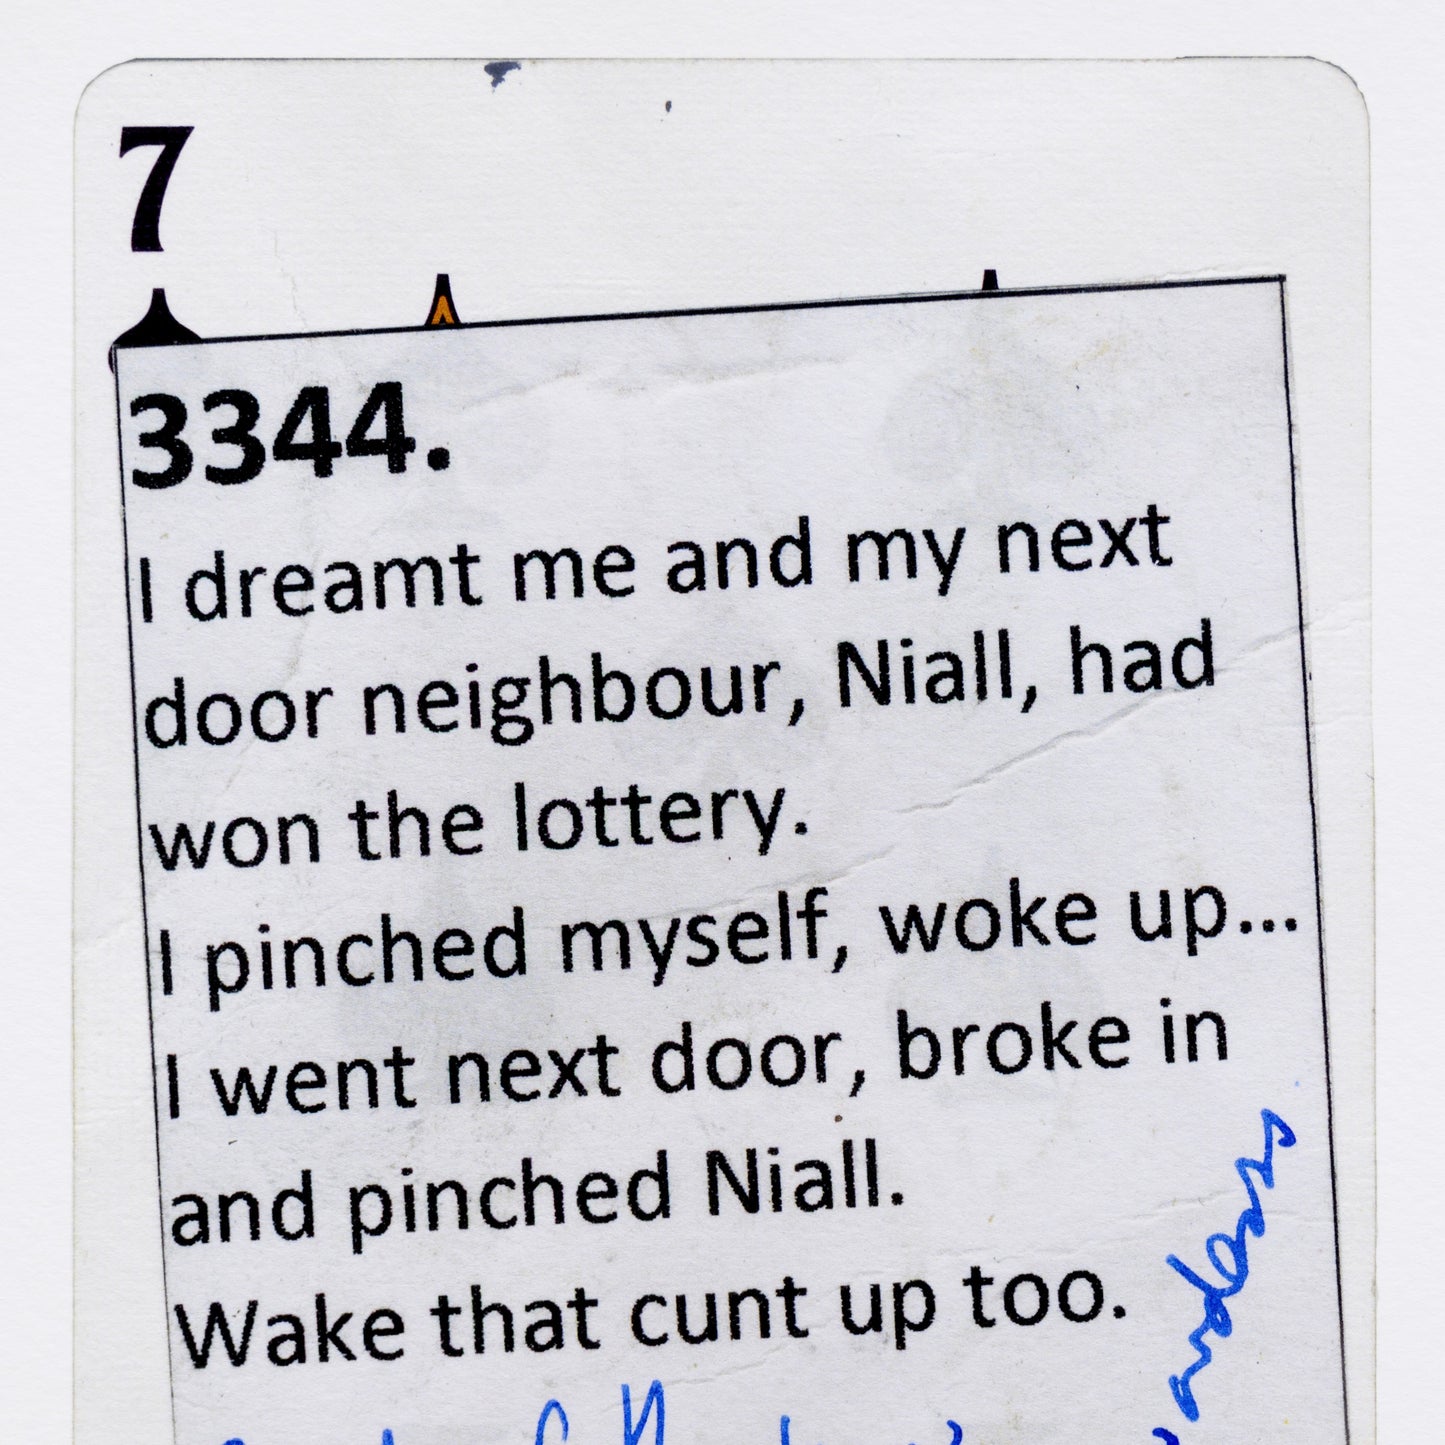 7
3344.
I dreamt me and my next
door neighbour, Niall, had
won the lottery.
I pinched myself, woke up...
I went next door, broke in
and pinched Niall.
Wake that cunt up too.